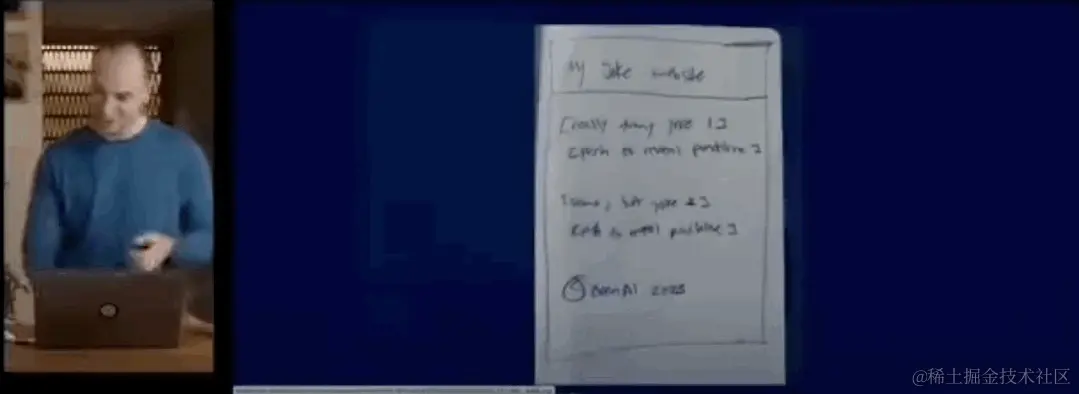 My Joke website
[really funny joke 1]
[push to reveal punchline]
joke 2]
[push to reveal punchline]
© OpenAI 2023
@稀土掘金技术社区